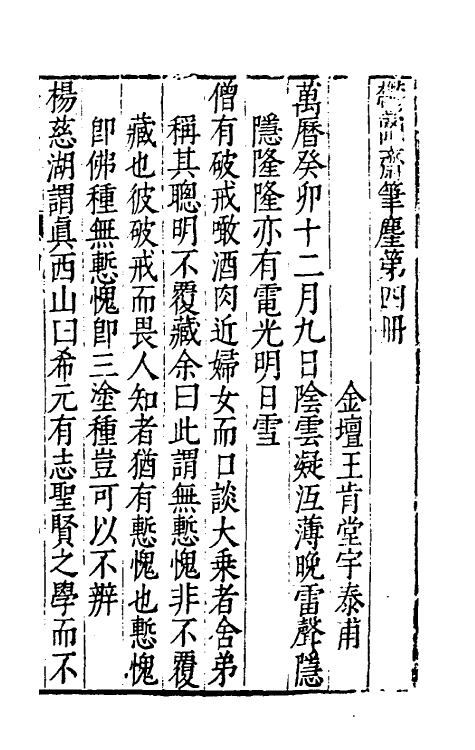 鬱岡齋筆麈第四冊
金壇王肯堂宇泰甫
萬曆癸卯十二月九日陰雲凝沍薄晚雷聲隱
隱隆隆亦有電光明日雪
僧有破戒噉酒肉近婦女而口談大乗者舍弟
稱其聰明不覆藏余曰此謂無慙愧非不覆
藏也彼破戒而畏人知者猶有慙愧也慙愧
卽佛種無慙愧卽三塗種豈可以不辨
楊慈湖謂眞西山曰希元有志聖賢之學而不